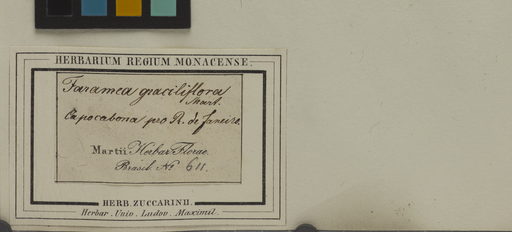 HERBARIUM REGIUM MONACENSE.
Faramea graciliflora
Mart.
Capocabona pro R. de Janeiro.
Martii Herbar. Florae
Brasil. No 611.
HERB. ZUCCARINII.
Herbar. Univ. Ludov. Maximil.